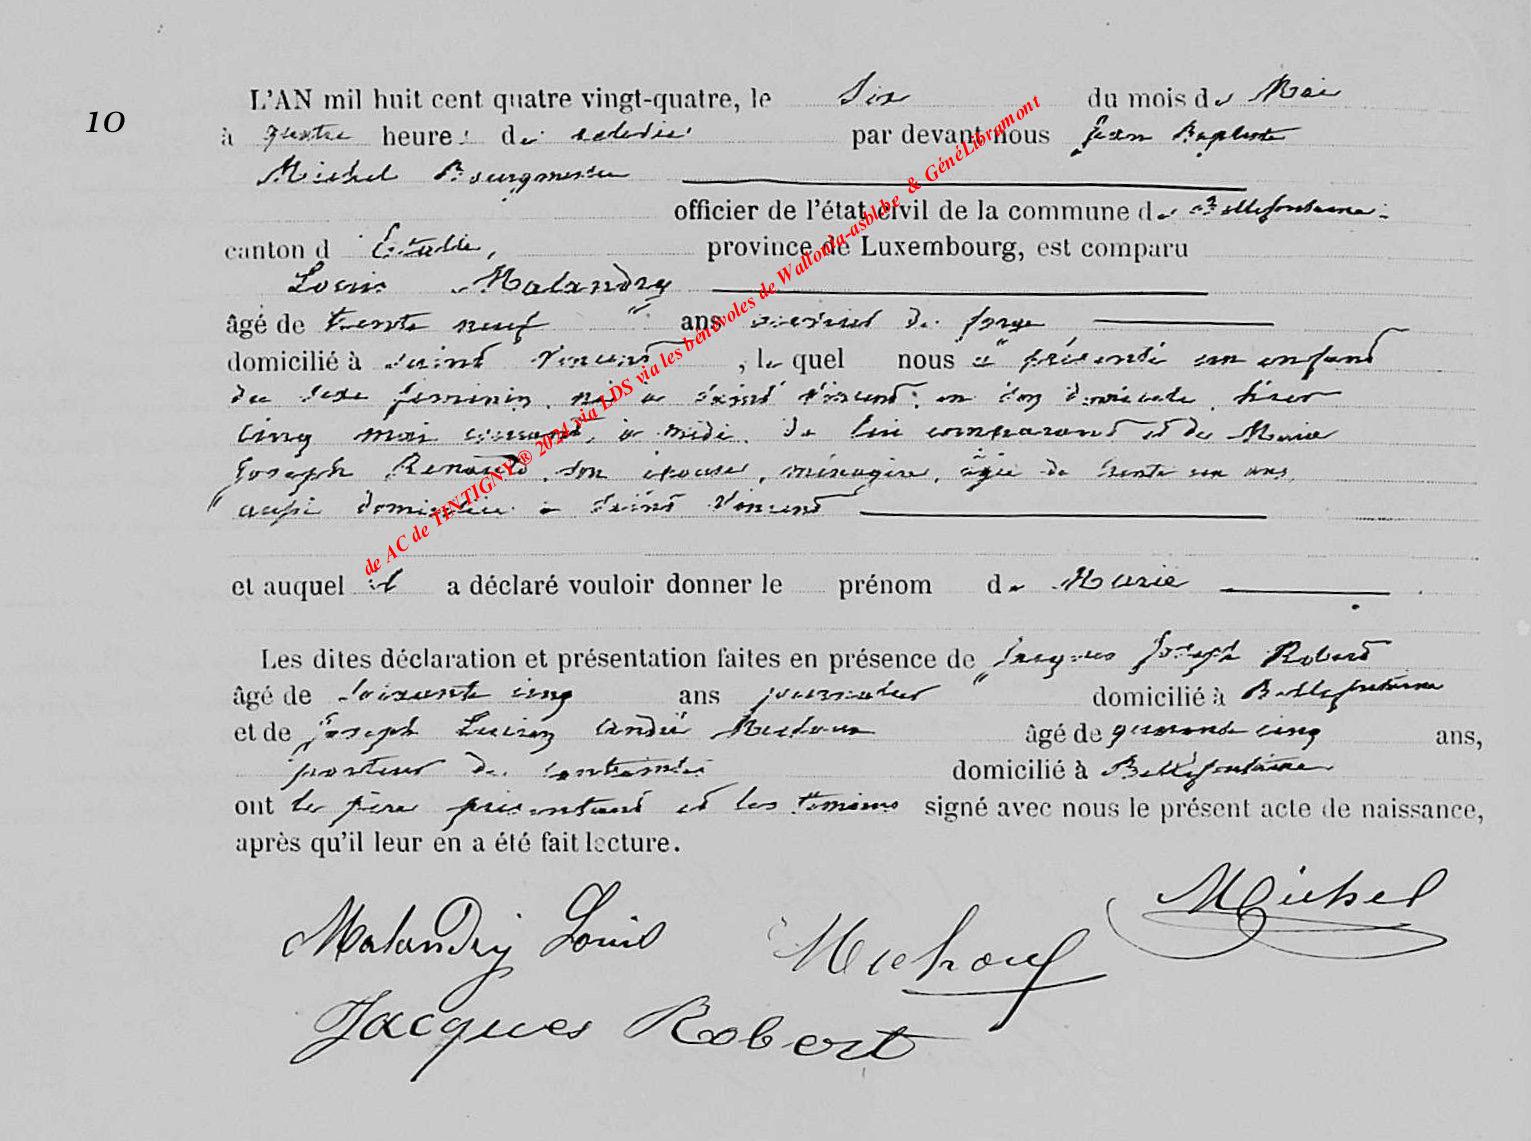 10
L'AN mil huit cent quatre vingt-quatre, le Six du mois de Mai
à quatre heures de relevée par devant nous Jean Baptiste
Michel Bourgmestre
officier de l'état civil de la commune de Bellefontaine
canton d'Etalle, province de Luxembourg, est comparu
Louis Malandry
âgé de trente neuf ans ouvrier de forge
domicilié à Saint Vincent, lequel nous a présenté un enfant
du sexe féminin, né à Saint Vincent, en son domicile, hier
cinq mai courant, à midi, de lui comparant et de Marie
Joseph Renauld, son épouse, ménagère, âgée de trente un ans,
aussi domiciliée à Saint Vincent
et auquel il a déclaré vouloir donner le prénom de Marie
Les dites déclaration et présentation faites en présence de Jacques Joseph Robert
âgé de soixante cinq ans journalier domicilié à Bellefontaine
et de Joseph Lucien André âgé de quarante cinq ans,
porteur de contraintes domicilié à Bellefontaine
ont le père présentant et les témoins signé avec nous le présent acte de naissance,
après qu'il leur en a été fait lecture.
Malandry Louis Michel
Jacques Robert
de AC de TINTIGNY® 2024 via LDS via les bénévoles de Wallonia-asbl.be & GénéLibramont